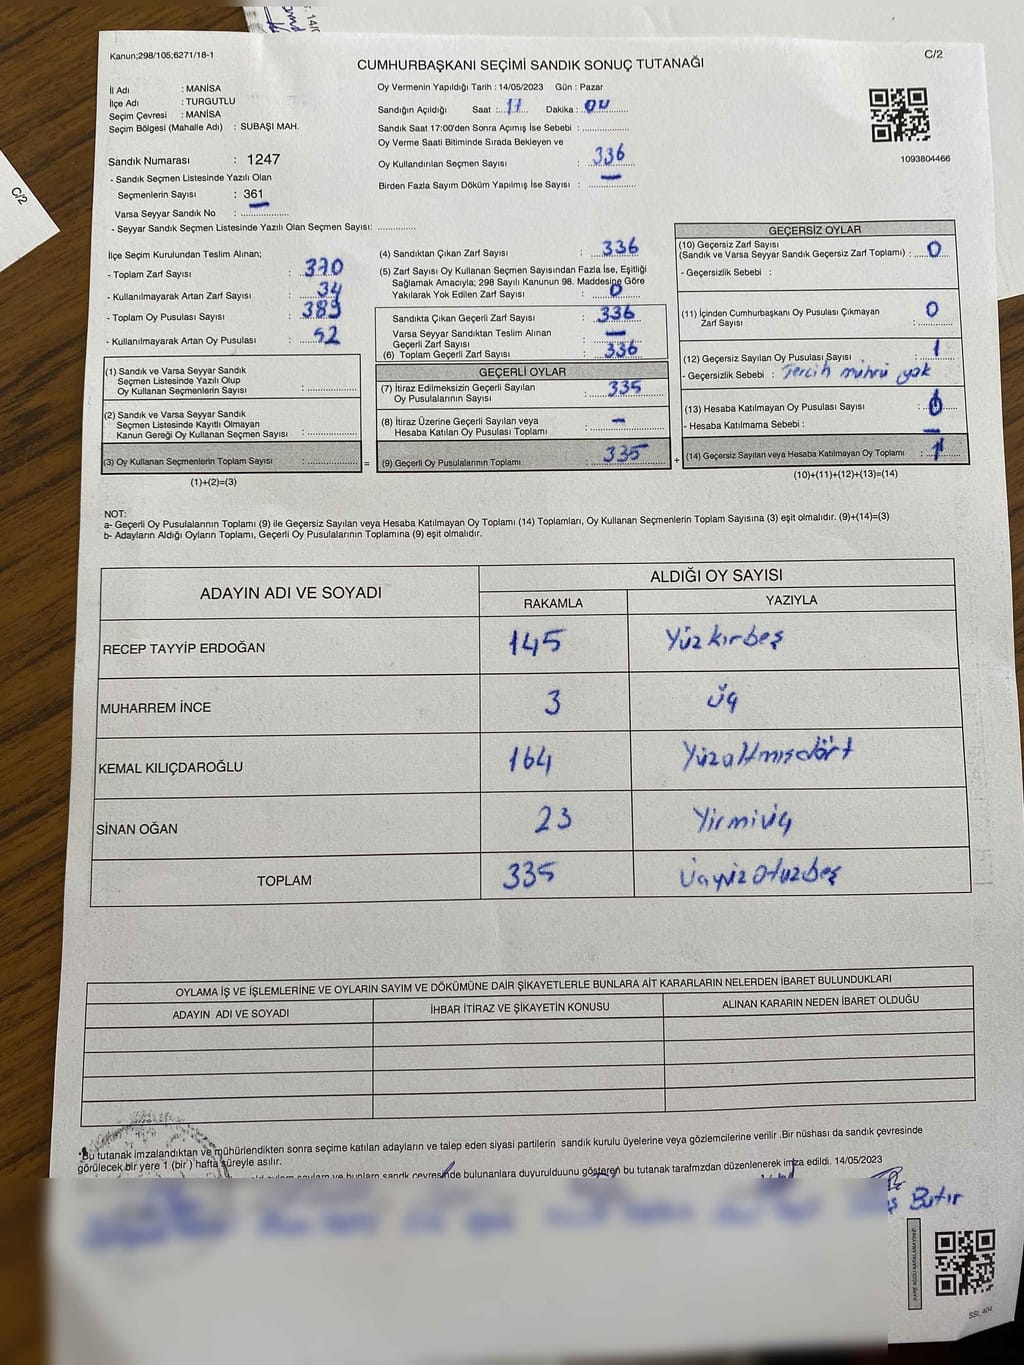 Kanun;298/105;6271/18-1
C/2
CUMHURBAŞKANI SEÇİMİ SANDIK SONUÇ TUTANAĞI
İl Adı : MANİSA
İlçe Adı : TURGUTLU
Seçim Çevresi : MANİSA
Seçim Bölgesi (Mahalle Adı) : SUBAŞI MAH.
Sandık Numarası : 1247
- Sandık Seçmen Listesinde Yazılı Olan
Seçmenlerin Sayısı : 361
Varsa Seyyar Sandık No : ..................
- Seyyar Sandık Seçmen Listesinde Yazılı Olan Seçmen Sayısı: ..............
Oy Vermenin Yapıldığı Tarih : 14/05/2023 Gün : Pazar
Sandığın Açıldığı Saat : 17 Dakika : 00
Sandık Saat 17:00'den Sonra Açımış İse Sebebi : ..................
Oy Verme Saati Bitiminde Sırada Bekleyen ve
Oy Kullandırılan Seçmen Sayısı : 336
Birden Fazla Sayım Döküm Yapılmış İse Sayısı : —
1093804466
İlçe Seçim Kurulundan Teslim Alınan;
- Toplam Zarf Sayısı : 370
- Kullanılmayarak Artan Zarf Sayısı : 34
- Toplam Oy Pusulası Sayısı : 389
- Kullanılmayarak Artan Oy Pusulası : 52
(1) Sandık ve Varsa Seyyar Sandık
Seçmen Listesinde Yazılı Olup
Oy Kullanan Seçmenlerin Sayısı : ..................
(2) Sandık ve Varsa Seyyar Sandık
Seçmen Listesinde Kayıtlı Olmayan
Kanun Gereği Oy Kullanan Seçmen Sayısı : ..................
(3) Oy Kullanan Seçmenlerin Toplam Sayısı : ..................
(1)+(2)=(3)
(4) Sandıktan Çıkan Zarf Sayısı : 336
(5) Zarf Sayısı Oy Kullanan Seçmen Sayısından Fazla İse, Eşitliği
Sağlamak Amacıyla; 298 Sayılı Kanunun 98. Maddesine Göre
Yakılarak Yok Edilen Zarf Sayısı : 0
Sandıkta Çıkan Geçerli Zarf Sayısı : 336
Varsa Seyyar Sandıktan Teslim Alınan
Geçerli Zarf Sayısı : —
(6) Toplam Geçerli Zarf Sayısı : 336
GEÇERLİ OYLAR
(7) İtiraz Edilmeksizin Geçerli Sayılan
Oy Pusulalarının Sayısı : 335
(8) İtiraz Üzerine Geçerli Sayılan veya
Hesaba Katılan Oy Pusulası Toplamı : —
= (9) Geçerli Oy Pusulalarının Toplamı : 335
GEÇERSİZ OYLAR
(10) Geçersiz Zarf Sayısı
(Sandık ve Varsa Seyyar Sandık Geçersiz Zarf Toplamı) : 0
- Geçersizlik Sebebi :
(11) İçinden Cumhurbaşkanı Oy Pusulası Çıkmayan
Zarf Sayısı : 0
(12) Geçersiz Sayılan Oy Pusulası Sayısı : 1
- Geçersizlik Sebebi : Tercih mührü yok
(13) Hesaba Katılmayan Oy Pusulası Sayısı : 0
- Hesaba Katılmama Sebebi : —
+ (14) Geçersiz Sayılan veya Hesaba Katılmayan Oy Toplamı : 1
(10)+(11)+(12)+(13)=(14)
NOT:
a- Geçerli Oy Pusulalarının Toplamı (9) ile Geçersiz Sayılan veya Hesaba Katılmayan Oy Toplamı (14) Toplamları, Oy Kullanan Seçmenlerin Toplam Sayısına (3) eşit olmalıdır. (9)+(14)=(3)
b- Adayların Aldığı Oyların Toplamı, Geçerli Oy Pusulalarının Toplamına (9) eşit olmalıdır.
ADAYIN ADI VE SOYADI
ALDIĞI OY SAYISI
RAKAMLA YAZIYLA
RECEP TAYYİP ERDOĞAN 145 Yüzkırbeş
MUHARREM İNCE 3 Üç
KEMAL KILIÇDAROĞLU 164 Yüzaltmışdört
SİNAN OĞAN 23 Yirmiüç
TOPLAM 335 Üçyüzotuzbeş
OYLAMA İŞ VE İŞLEMLERİNE VE OYLARIN SAYIM VE DÖKÜMÜNE DAİR ŞİKAYETLERLE BUNLARA AİT KARARLARIN NELERDEN İBARET BULUNDUKLARI
ADAYIN ADI VE SOYADI İHBAR İTİRAZ VE ŞİKAYETİN KONUSU ALINAN KARARIN NEDEN İBARET OLDUĞU
Bu tutanak imzalandıktan ve mühürlendikten sonra seçime katılan adayların ve talep eden siyasi partilerin sandık kurulu üyelerine veya gözlemcilerine verilir .Bir nüshası da sandık çevresinde
görülecek bir yere 1 (bir ) hafta süreyle asılır.
bulunanlara duyurulduunu gösteren bu tutanak tarafmzdan düzenlenerek imza edildi. 14/05/2023
Butır
SSI_404
C/2